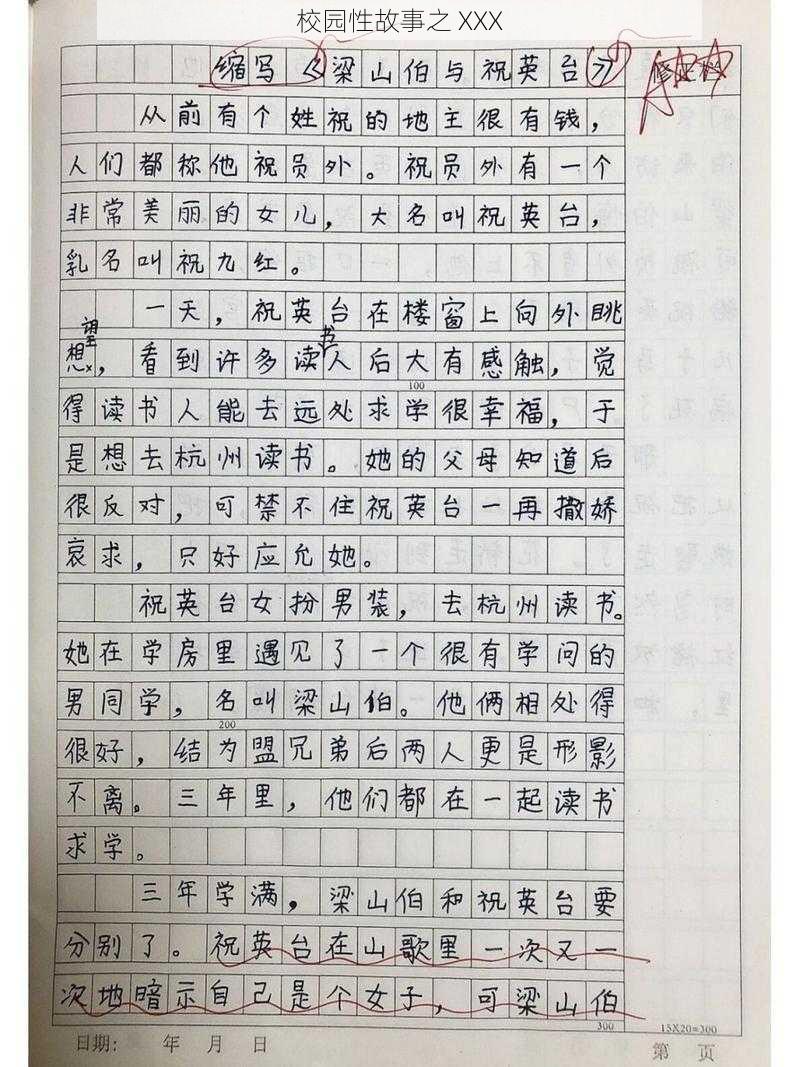 校园性故事之 XXX
缩写《梁山伯与祝英台》
修正栏
从前有个姓祝的地主很有钱，
人们都称他祝员外。祝员外有一个
非常美丽的女儿，大名叫祝英台，
乳名叫祝九红。
一天，祝英台在楼窗上向外眺
望
想，看到许多读书人后大有感触，觉
100
得读书人能去远处求学很幸福，于
是想去杭州读书。她的父母知道后
很反对，可禁不住祝英台一再撒娇
哀求，只好应允她。
祝英台女扮男装，去杭州读书。
她在学房里遇见了一个很有学问的
男同学，名叫梁山伯。他俩相处得
200
很好，结为盟兄弟后两人更是形影
不离。三年里，他们都在一起读书
求学。
三年学满，梁山伯和祝英台要
分别了。祝英台在山歌里一次又一
次地暗示自己是个女子，可梁山伯
300
15X20=300
日期： 年 月 日
第 页